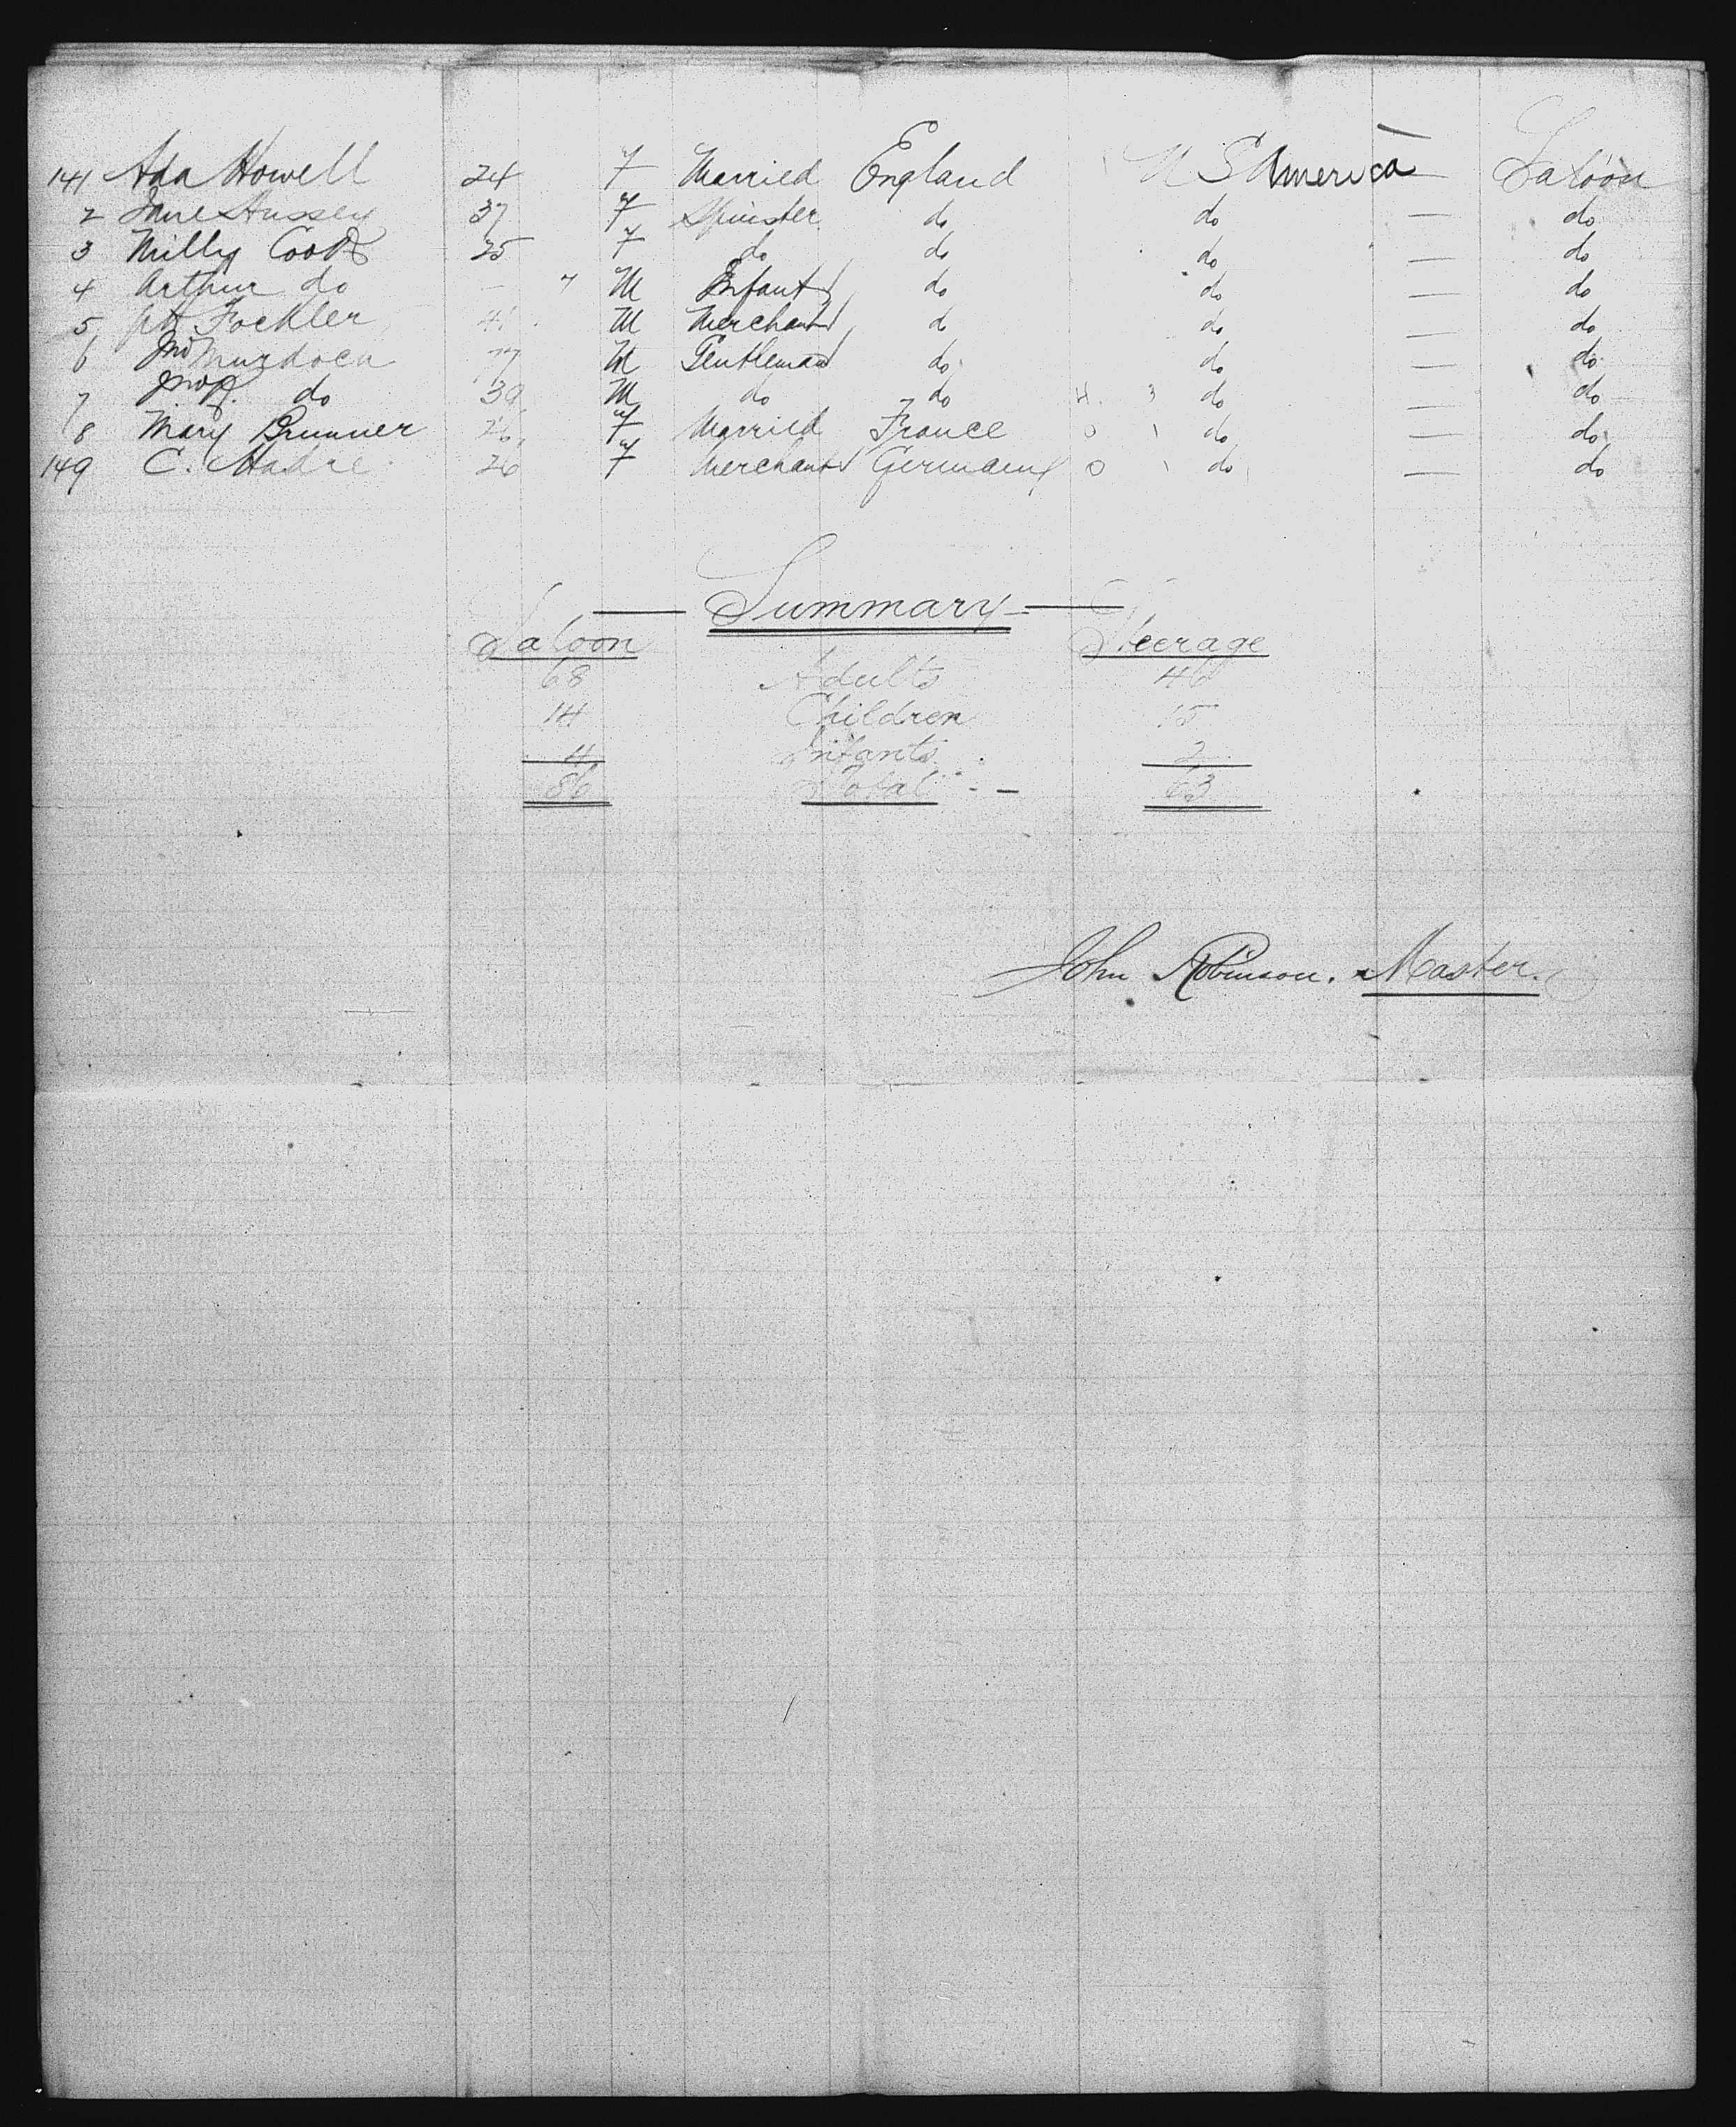 141 Ada Howell 24 F Married England U S America — Saloon
2 Jane Hussey 37 F Spinster do do — do
3 Milly Cook 25 F do do do — do
4 Arthur do — 7 M Infant do do — do
5 Fockler 41 M Merchant do do — do
6 Jno Murdoch 77 M Gentleman do do — do
7 do 39 M do do do — do
8 Mary Brunner 26 F Married France do — do
149 C. Madre 26 F Merchant Germany do — do
— Summary —
Saloon Steerage
68 Adults 46
14 Children 15
4 Infants 2
86 Total - - 63
John Robinson. Master.